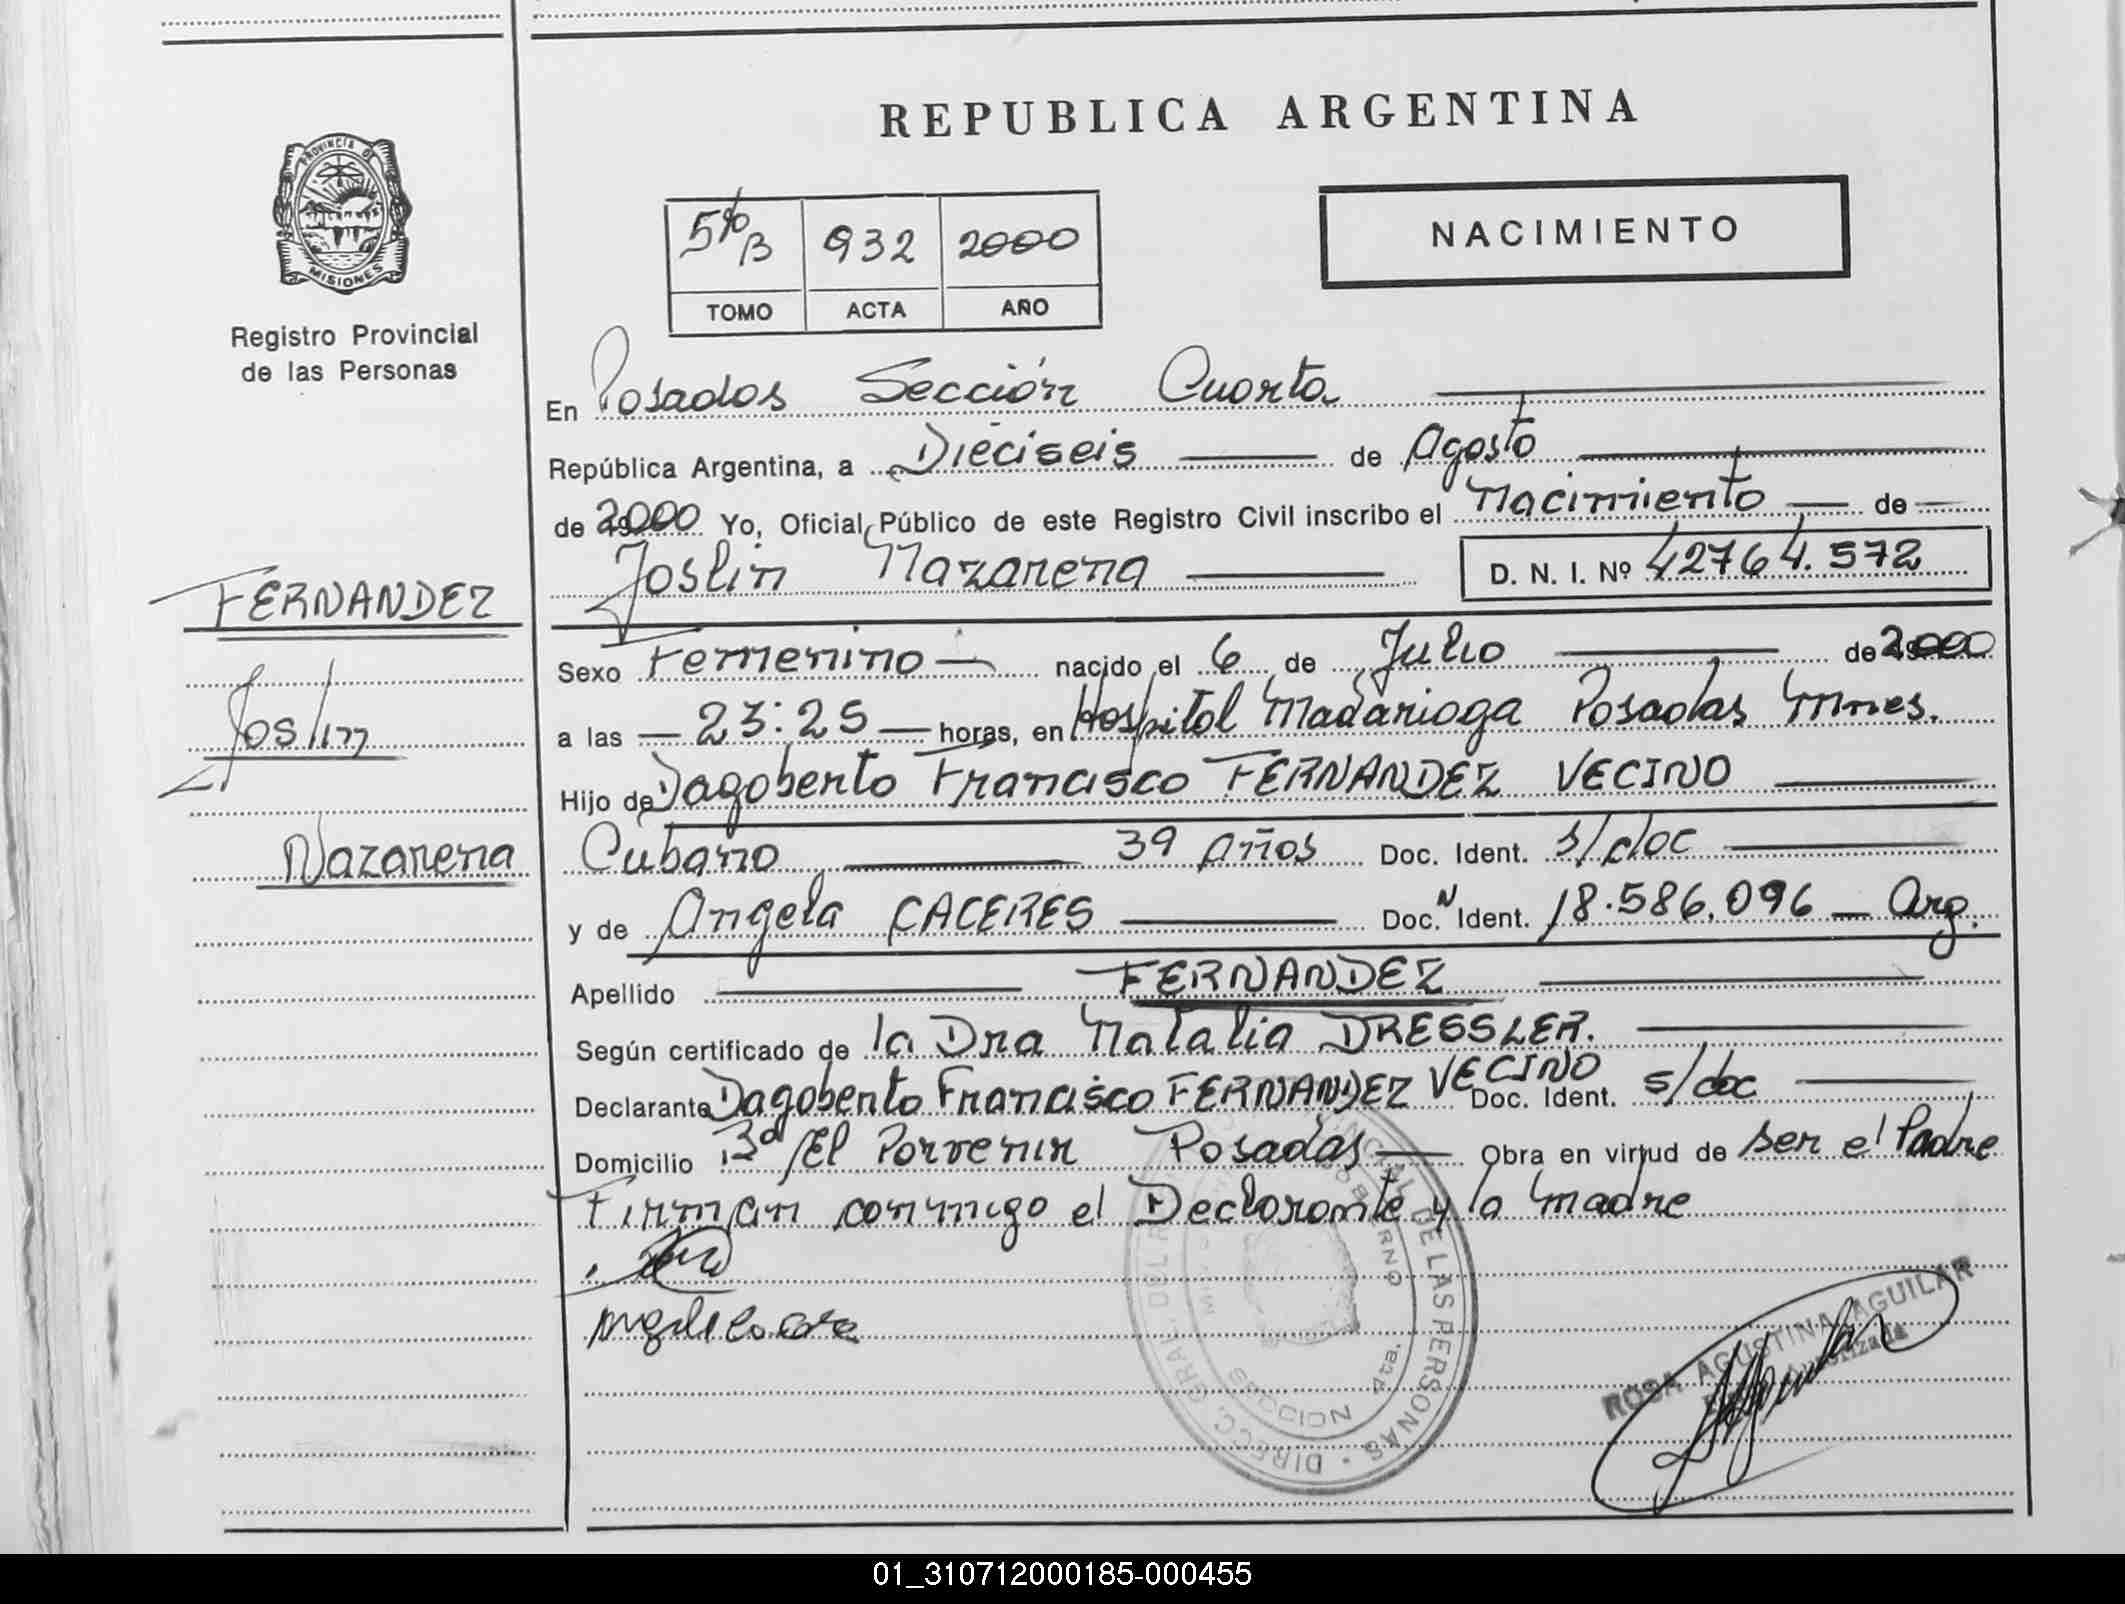 REPUBLICA ARGENTINA
PROVINCIA DE
MISIONES
Registro Provincial
de las Personas
5to B 932 2000
TOMO ACTA AÑO
NACIMIENTO
En Posadas Sección Cuarta
República Argentina, a Dieciseis de Agosto
de 2000 Yo, Oficial Público de este Registro Civil inscribo el Nacimiento de
Joslin Nazarena D. N. I. Nº 42764.572
FERNANDEZ
Joslin
Nazarena
Sexo Femenino nacido el 6 de Julio de 2000
a las 23:25 horas, en Hospital Madariaga Posadas Mnes.
Hijo de Dagoberto Francisco FERNANDEZ VECINO
Cubano 39 años Doc. Ident. s/doc
y de Angela CACERES Doc. Ident. N 18.586.096 Arg.
Apellido FERNANDEZ
Según certificado de la Dra Natalia DRESSLER.
Declarante Dagoberto Francisco FERNANDEZ VECINO Doc. Ident. s/doc
Domicilio Bº El Porvenir Posadas Obra en virtud de ser el Padre
Firman conmigo el Declarante y la madre
DIRECC. GRAL. DE LAS PERSONAS
SECCION 4ta.
ROSA AGUSTINA AGUILAR
Autorizada
01_310712000185-000455